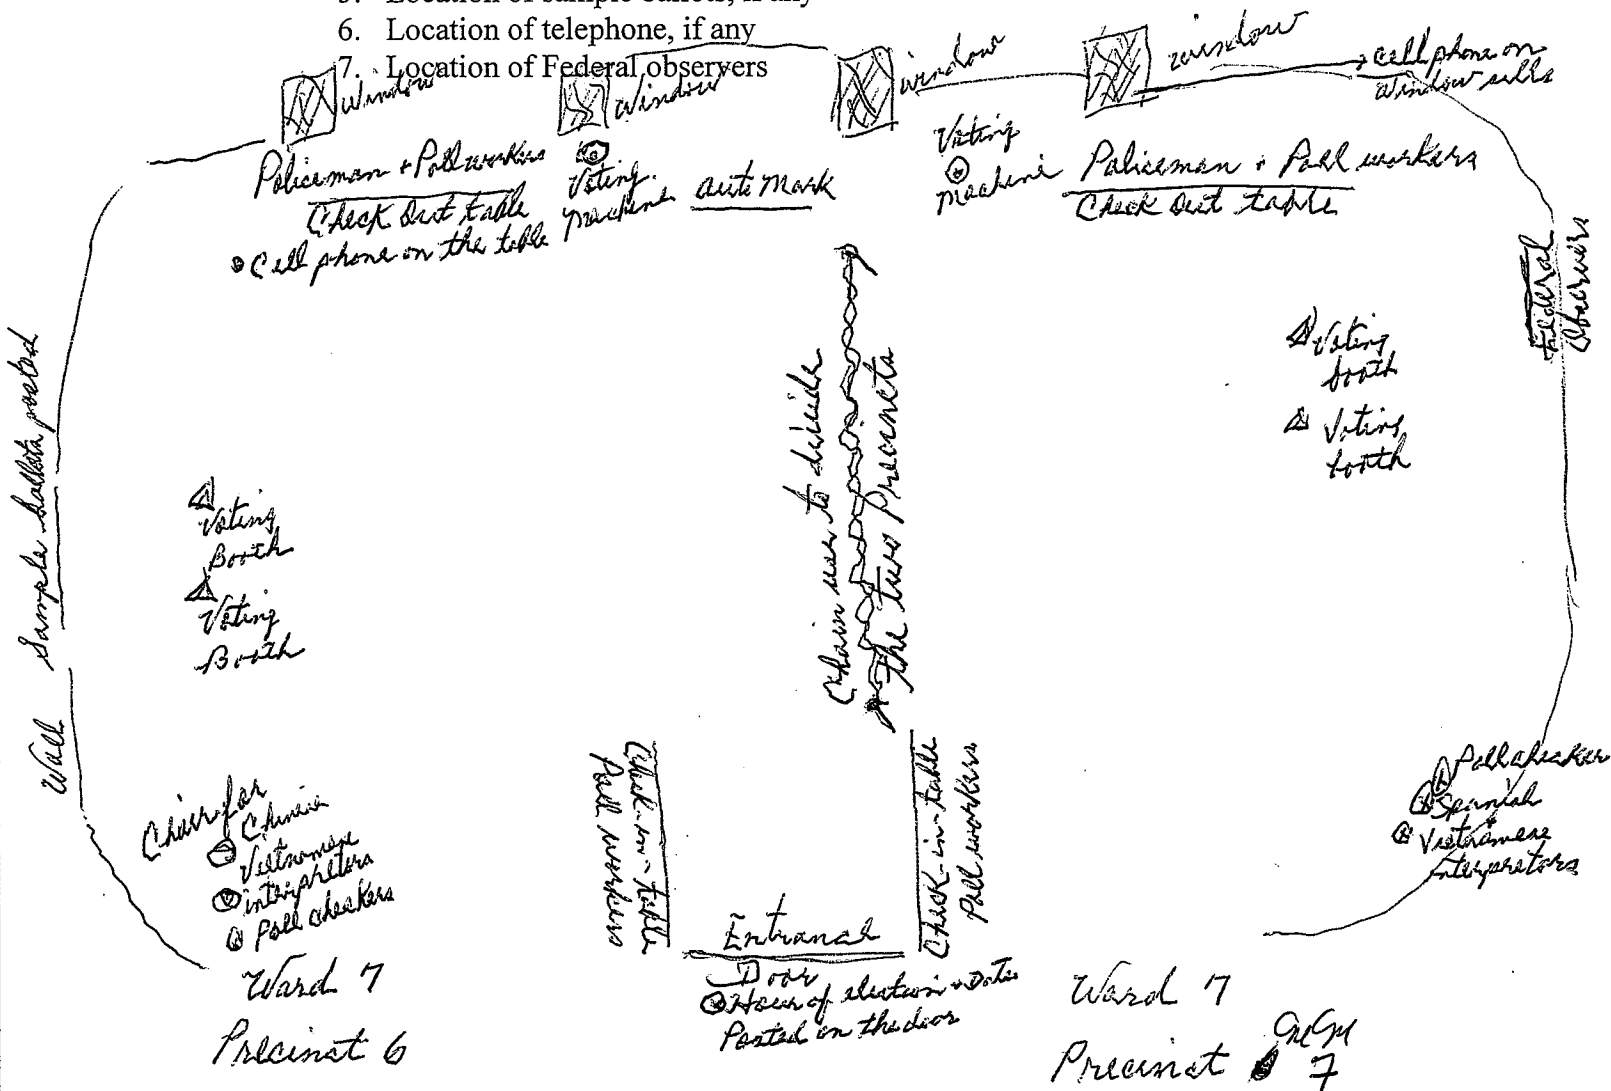 5. Location of sample ballots, if any
6. Location of telephone, if any
7. Location of Federal observers
Window
Window
window
window
cell phone on
window sills
Policeman + Poll workers
Check Out table
Cell phone on the table
Voting
Machine
Auto Mark
Voting
Machine
Policeman + Poll workers
Check Out table
Federal
Observers
Wall Sample ballots posted
Voting
Booth
Voting
Booth
Chain use to divide
the two Precincts
Voting
booth
Voting
booth
Chairs for
Chinese
Vietnamese
interpretors
Poll checkers
Check-in-table
Poll workers
Check-in-table
Poll workers
Poll checker
Spanish
Vietnamese
Interpretors
Entrance
Door
Hour of election + Date
Posted on the door
Ward 7
Precinct 6
Ward 7
Precinct 7